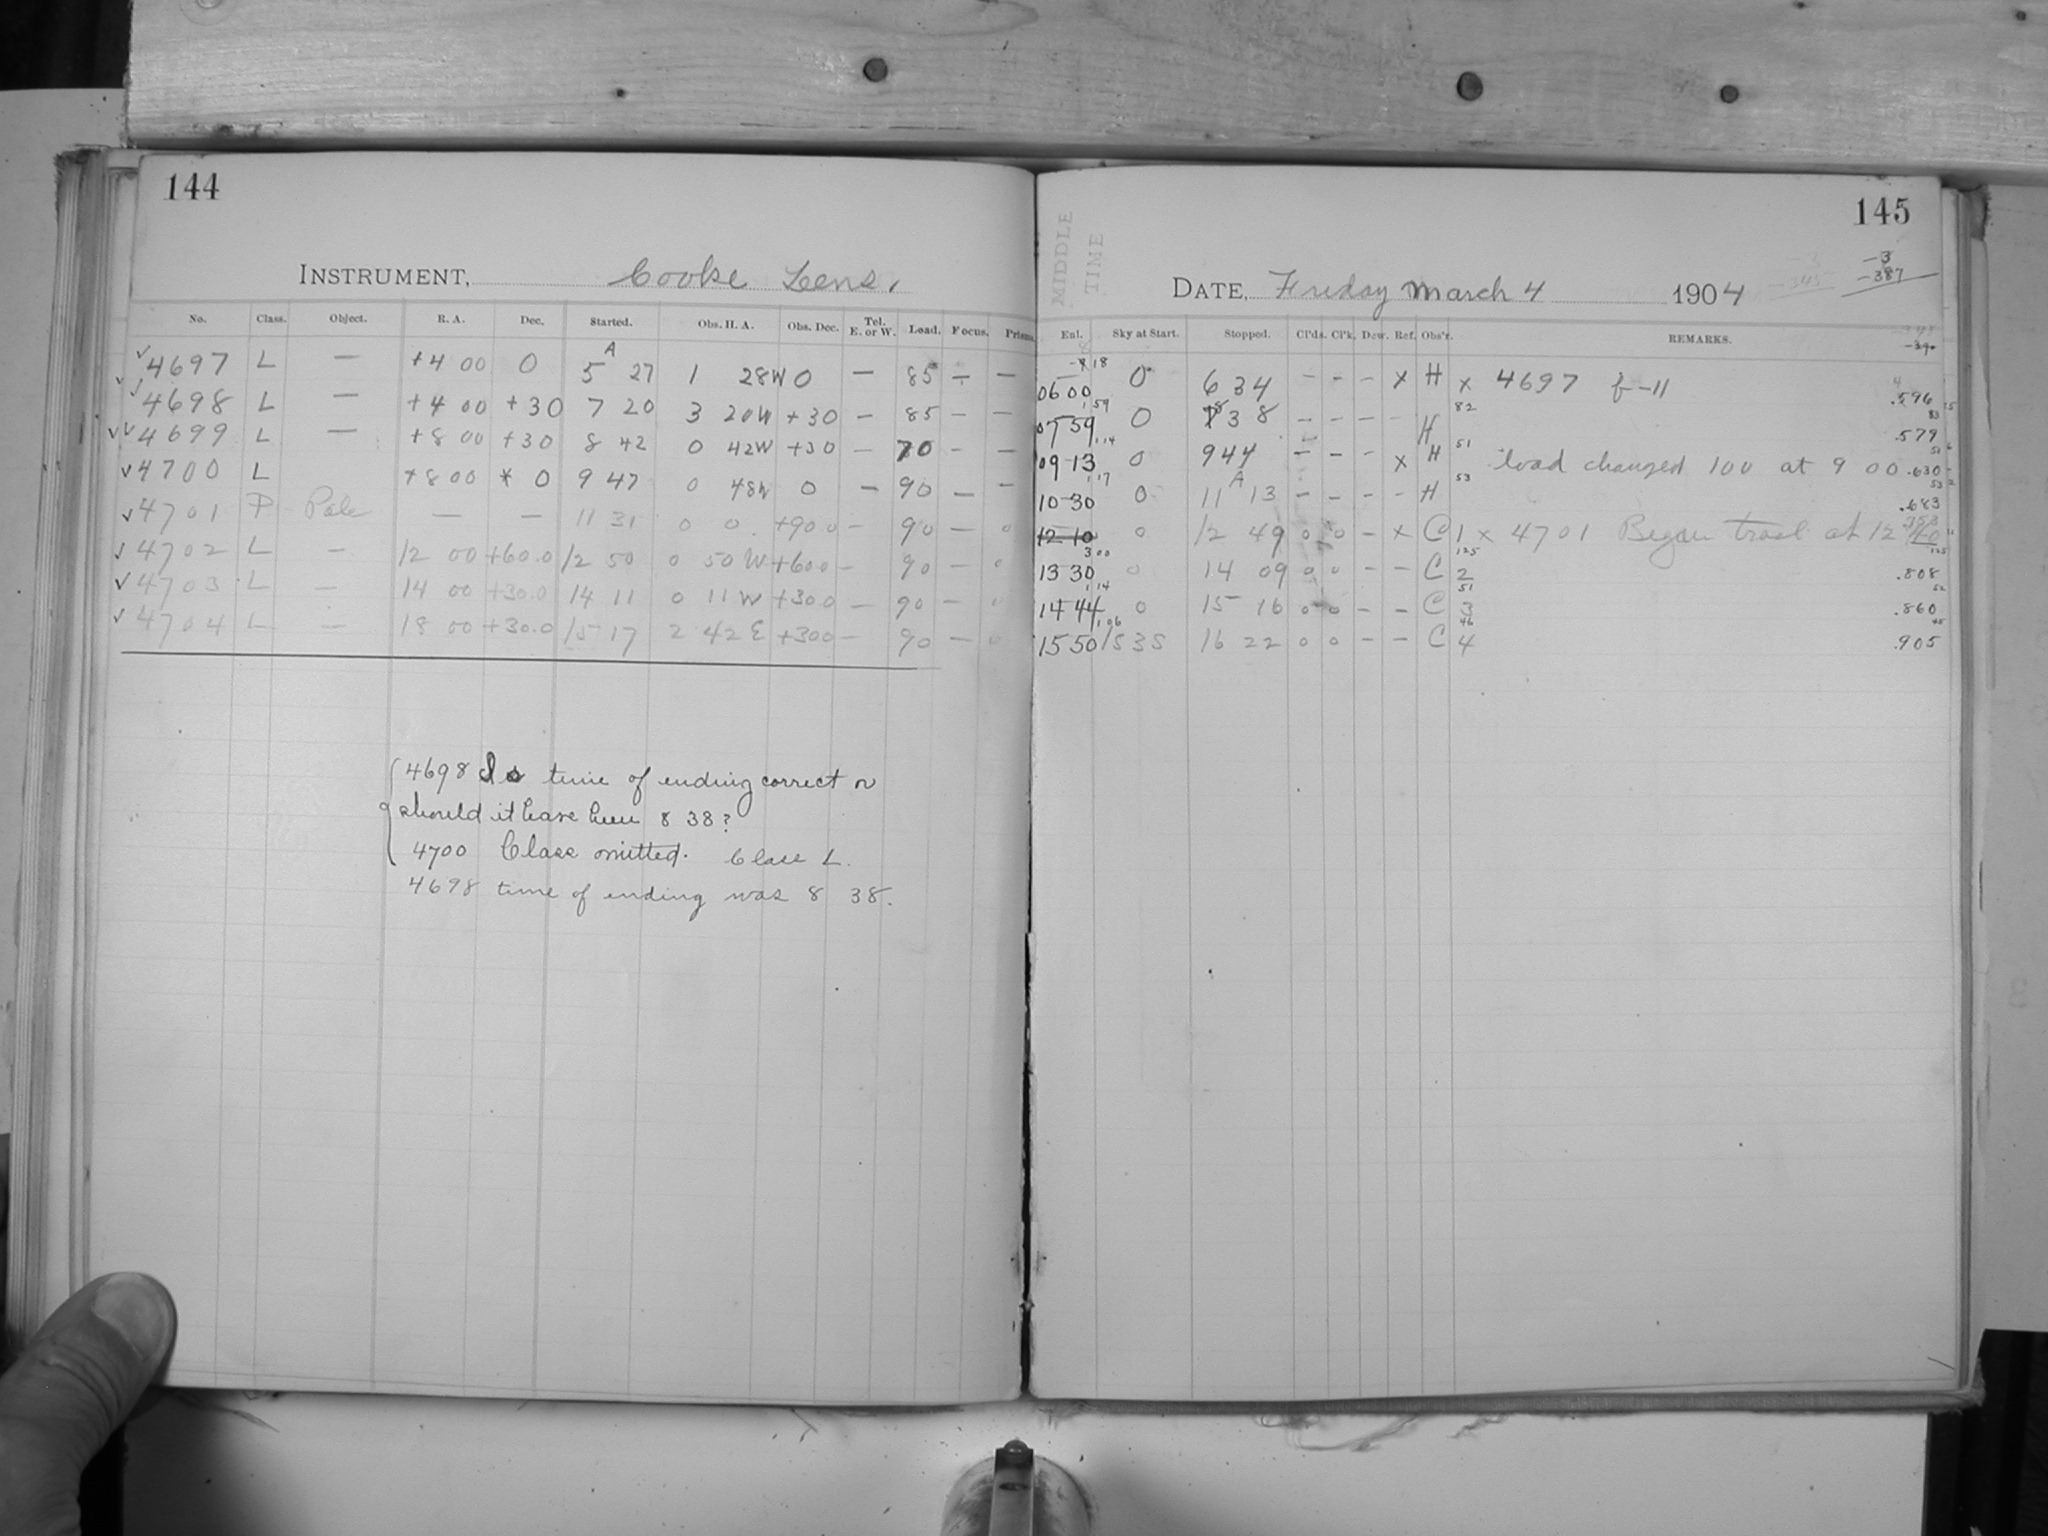 144
INSTRUMENT, Cooke Lens.
No. Class. Object. R. A. Dec. Started. Obs. H. A. Obs. Dec. Tel. E. or W. Load. Focus. Prisms.
4697 L — +4 00 0 5 A 27 1 28W 0 — 85 — —
4698 L — +4 00 +30 7 20 3 20W +30 — 85 — —
4699 L — +8 00 +30 8 42 0 42W +30 — 70 — —
4700 L +8 00 0 9 47 0 48W 0 — 90 — —
4701 P Pole — — 11 31 0 0 +90 0 — 90 — 0
4702 L — 12 00 +60.0 12 50 0 50 W +60 0 — 90 — 0
4703 L — 14 00 +30.0 14 11 0 11 W +30 0 — 90 — 0
4704 L — 18 00 +30.0 15 17 2 42 E +30 0 — 90 — 0
4698 Is time of ending correct or
should it have been 8 38?
4700 Class omitted. Class L.
4698 time of ending was 8 38.
145
MIDDLE
TIME
DATE, Friday March 4 1904
-3
-387
Enl. Sky at Start. Stopped. Cl'ds. Cl'k. Dew. Ref. Obs'r. REMARKS.
06 00 0 6 34 - - - x H x 4697 f-11 .596
07 59 0 38 - - - - H .579
09 13 0 9 44 - - - x H load changed 100 at 9 00 .630
10 30 0 11 A 13 - - - - H .683
12 10 0 12 49 0 0 - x C 1 x 4701 Began trail at 12 40
13 30 0 14 09 0 0 - - C 2 .808
14 44 0 15 16 0 0 - - C 3 .860
15 50 15 35 16 22 0 0 - - C 4 .905